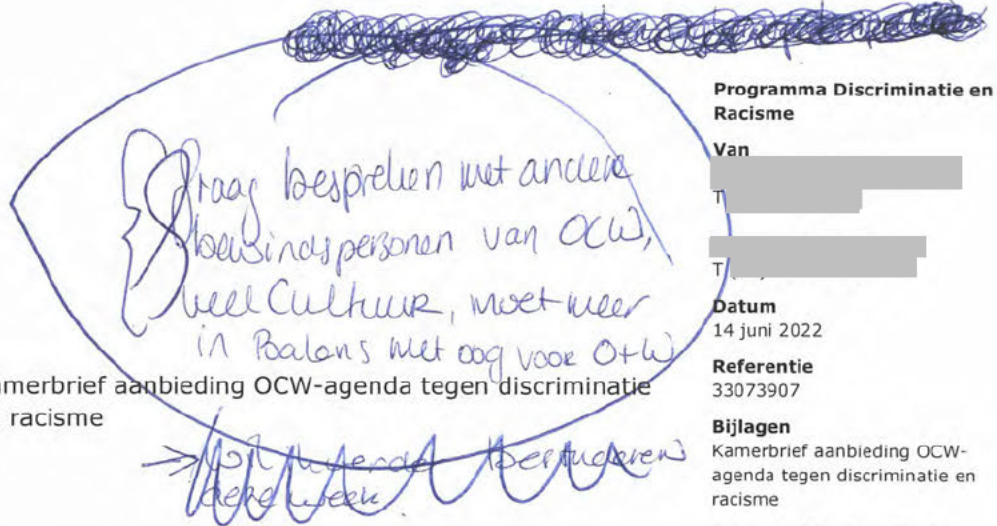 Graag bespreken met andere
bewindspersonen van OCW,
veel Cultuur, moet meer
in Balans met oog voor O+W
amerbrief aanbieding OCW-agenda tegen discriminatie
racisme
deze week
Programma Discriminatie en
Racisme
Van
T
T
Datum
14 juni 2022
Referentie
33073907
Bijlagen
Kamerbrief aanbieding OCW-
agenda tegen discriminatie en
racisme